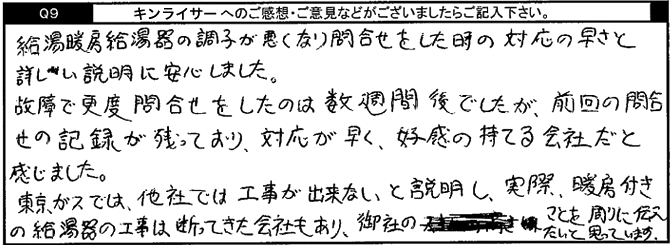 Q9 キンライサーへのご感想・ご意見などがございましたらご記入下さい。
給湯暖房給湯器の調子が悪くなり問合せをした時の対応の早さと
詳しい説明に安心しました。
故障で更度問合せをしたのは数週間後でしたが、前回の問合
せの記録が残っており、対応が早く、好感の持てる会社だと
感じました。
東京ガスでは、他社では工事が出来ないと説明し、実際、暖房付き
の給湯器の工事は断ってきた会社もあり、御社の
ことを周りに伝え
たいと思っています。